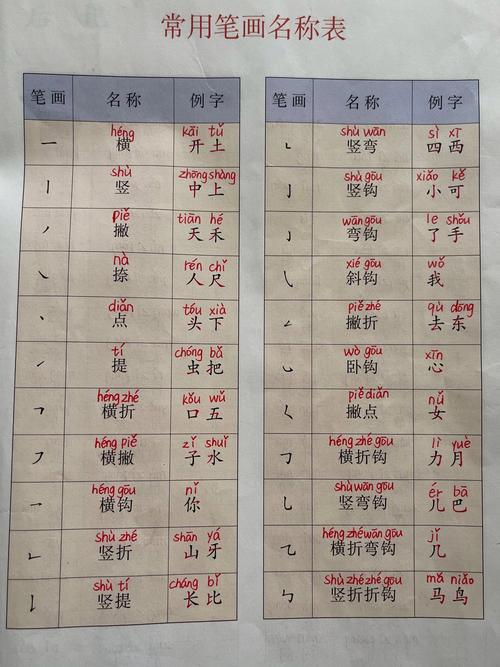 常用笔画名称表
笔画 名称 例字
héng kāi tǔ
一 横 开 土
shù zhōng shàng
丨 竖 中 上
piě tiān hé
丿 撇 天 禾
nà rén chǐ
㇏ 捺 人 尺
diǎn tóu xià
丶 点 头 下
tí chóng bǎ
㇀ 提 虫 把
héng zhé kǒu wǔ
㇕ 横折 口 五
héng piě zǐ shuǐ
㇇ 横撇 子 水
héng gōu nǐ
乛 横钩 你
shù zhé shān yá
㇗ 竖折 山 牙
shù tí cháng bǐ
㇙ 竖提 长 比
笔画 名称 例字
shù wān sì xī
㇄ 竖弯 四 西
shù gōu xiǎo kě
亅 竖钩 小 可
wān gōu le shǒu
㇁ 弯钩 了 手
xié gōu wǒ
㇂ 斜钩 我
piě zhé qù dōng
㇜ 撇折 去 东
wò gōu xīn
㇃ 卧钩 心
piě diǎn nǚ
㇛ 撇点 女
héng zhé gōu lì yuè
㇆ 横折钩 力 月
shù wān gōu ér bā
乚 竖弯钩 儿 巴
héng zhé wān gōu jǐ
㇈ 横折弯钩 几
shù zhé zhé gōu mǎ niǎo
㇉ 竖折折钩 马 鸟